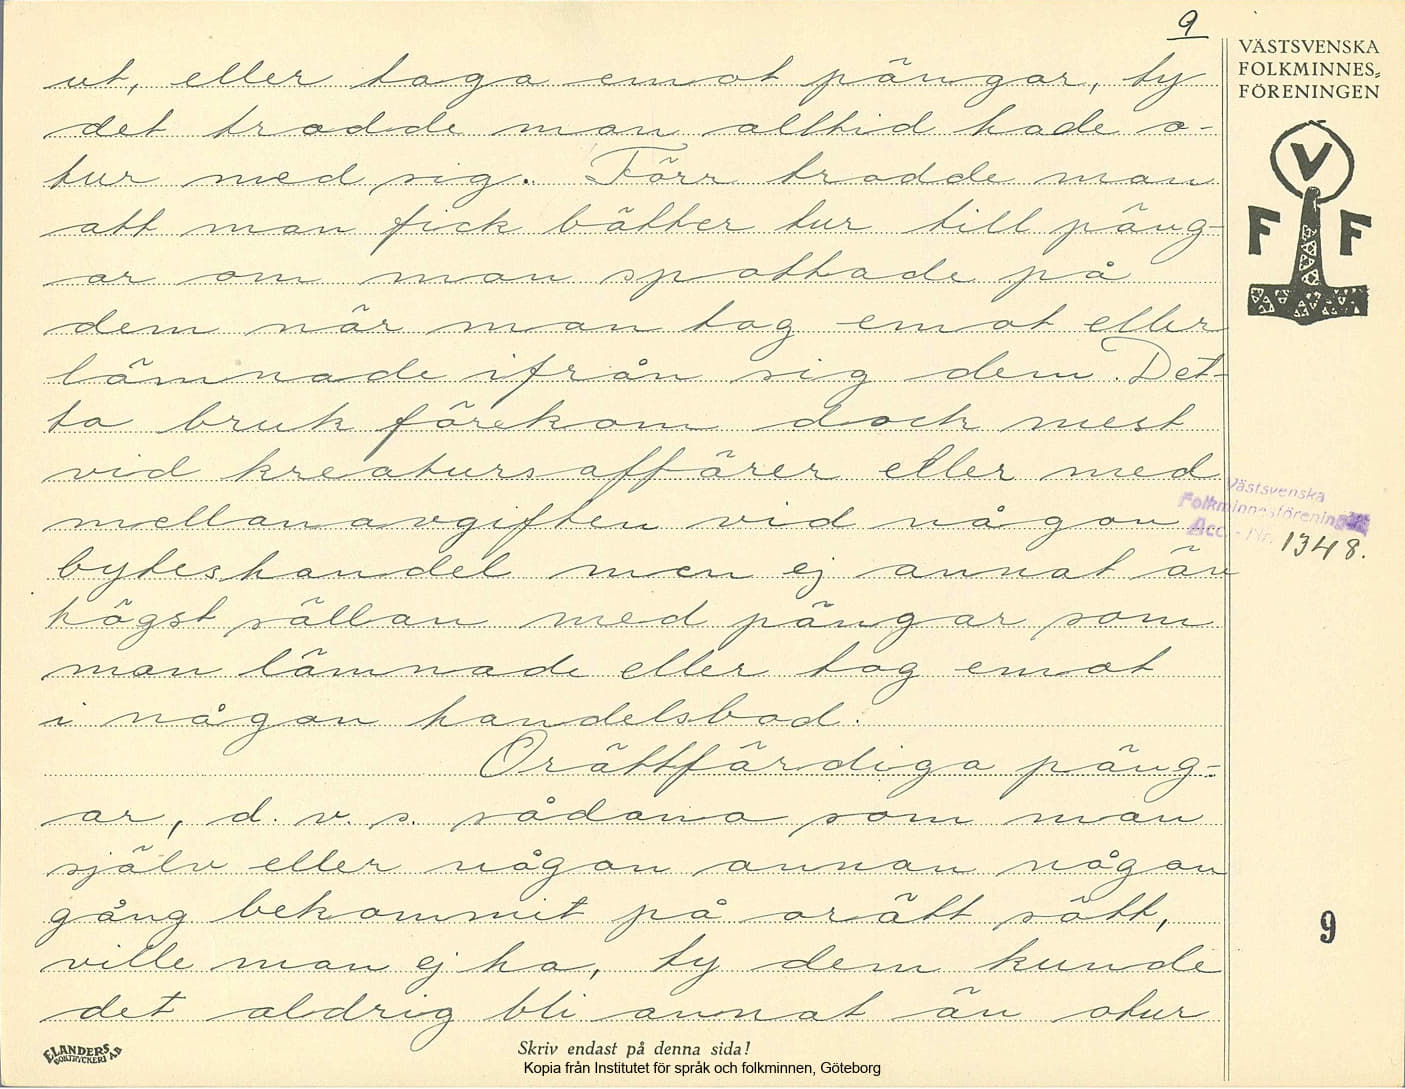 9
ut, eller taga emot pängar, ty
det trodde man alltid hade o-
tur med sig. Förr trodde man
att man fick bätter tur till päng-
ar om man spottade på
dem när man tog emot eller
lämnade ifrån sig dem. Det-
ta bruk förekom dock mest
vid kreatursaffärer eller med
mellanavgiften vid någon
byteshandel men ej annat än
högst sällan med pängar som
man lämnade eller tog emot
i någon handelsbod.
Orättfärdiga päng-
ar, d. v. s. sådana som man
själv eller någon annan någon
gång bekommit på orätt sätt,
ville man ej ha, ty dem kunde
det aldrig bli annat än otur
VÄSTSVENSKA
FOLKMINNES-
FÖRENINGEN
V
F F
Västsvenska
Folkminnesförening
Acc. - Nr. 1348.
9
ELANDERS
BOKTRYCKERI AB
Skriv endast på denna sida!
Kopia från Institutet för språk och folkminnen, Göteborg